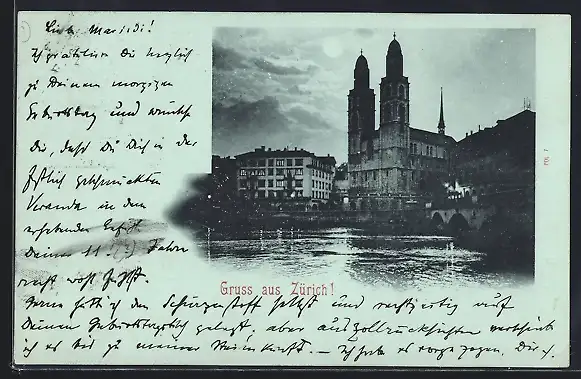 Liebe Mariedi!
Ich gratuliere Dir herzlich
zu Deinem morgigen
Geburtstag und wünsche
Dir, daß Du Dich in der
festlich geschmückten
Veranda in dem
Deiner 11. (?) Jahre
recht wohl
Gruss aus Zürich!
Gerne hätte ich den Schürzenstoff selbst und rechtzeitig auf
Deinen Geburtstagstisch gelegt, aber aus zollrücksichten verschiebe
ich es bis zu meiner Wiederkunft. – Ich habe es vorgezogen, Dir